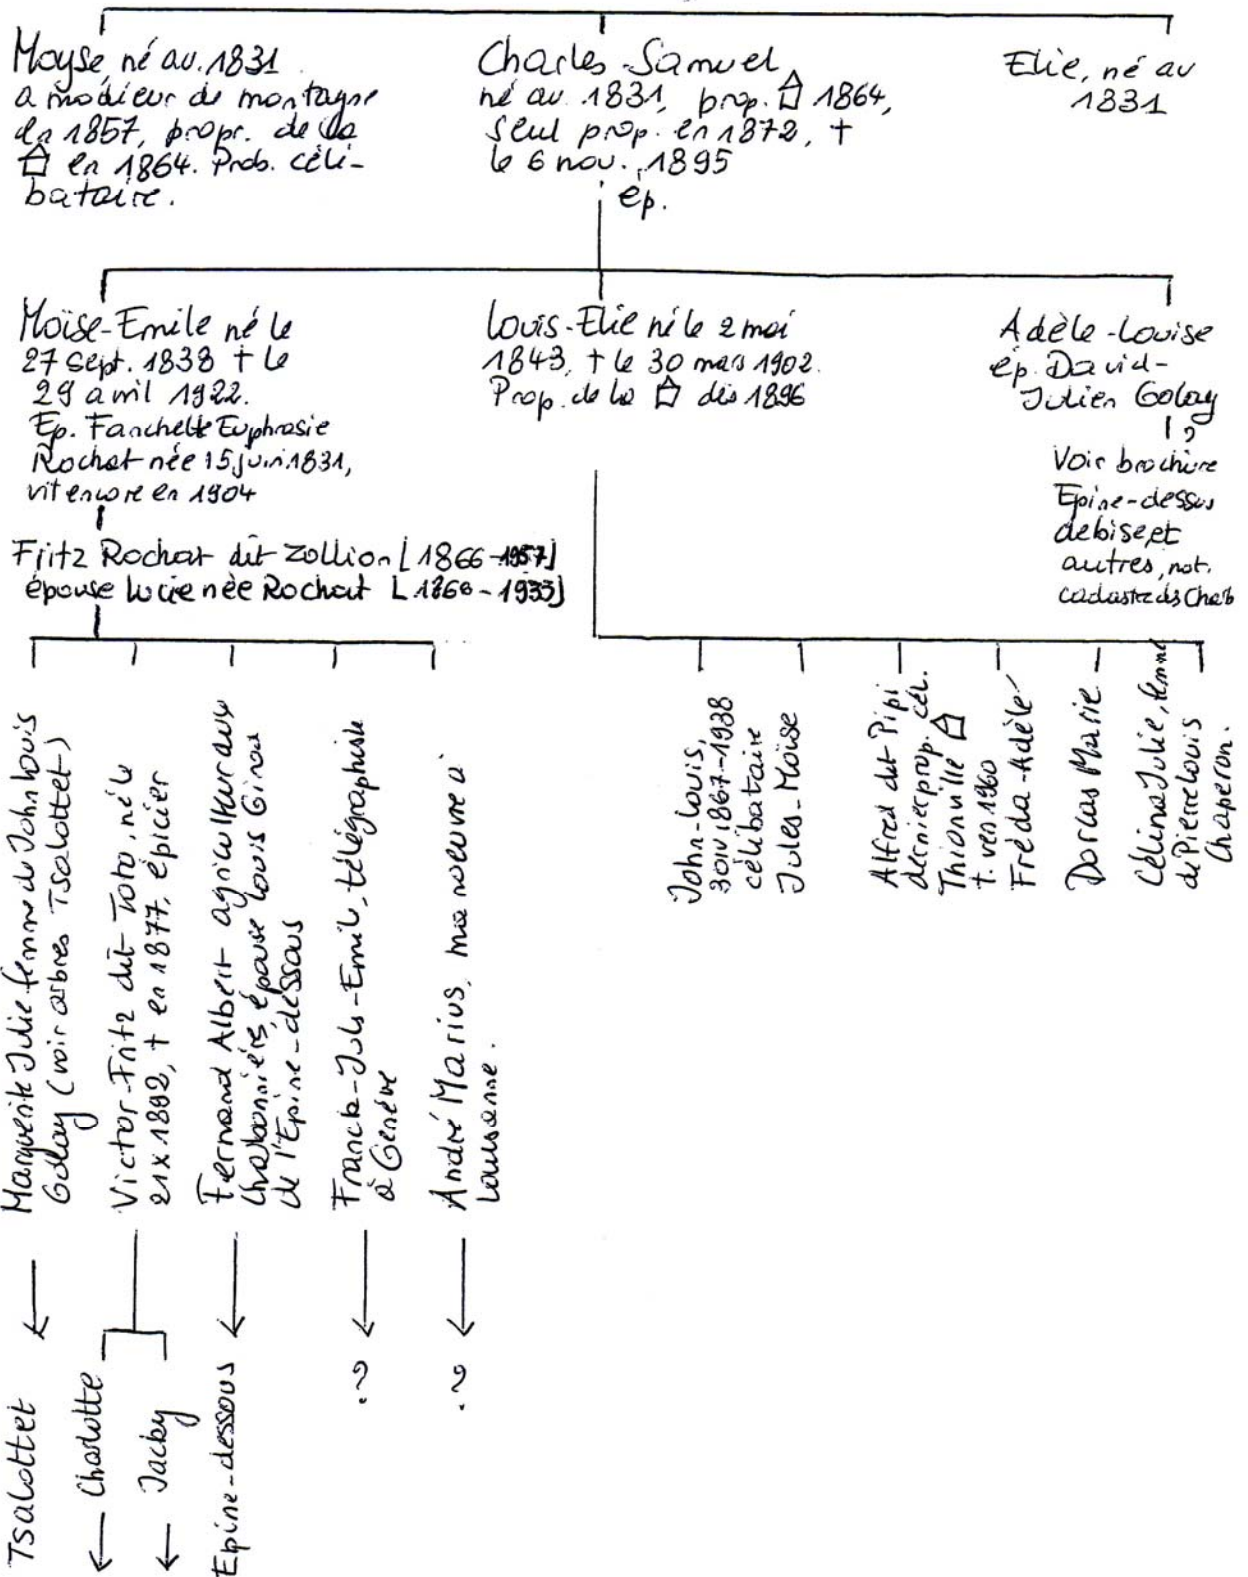 Moyse, né av. 1831
amodieur de montagne
en 1857, propr. de la
en 1864. Prob. céli-
bataire.
Charles-Samuel
né av. 1831, prop. 1864,
seul prop. en 1872, †
le 6 nov. 1895
ép.
Elie, né av
1831
Moïse-Emile né le
27 sept. 1838 † le
29 avril 1922.
Ep. Fanchette Euphrasie
Rochat née 15 juin 1831,
vit encore en 1904
Louis-Elie né le 2 mai
1843, † le 30 mars 1902.
Prop. de la dès 1896
Adèle-Louise
ép. David-
Julien Golay
?
Voir brochure
Epine-dessus
debise, et
autres, not.
cadastre ds Charb
Fritz Rochat dit Zollion [1866-1957]
épouse Lucie née Rochat [1868-1933]
Marguerite Julie femme du John Louis
Golay (voir arbres Tsalottet)
Victor-Fritz dit Toto, né le
21 x 1892, † en 1877, épicier
Fernand Albert agriculteur aux
Charbonnières, épouse Louis Giroud
de l'Epine-dessous
Franck-Juls-Emile, télégraphiste
à Genève
André Marius, manoeuvre à
Lausanne.
John-Louis,
30 iv 1867-1938
célibataire
Jules-Moïse
Alfred dit Pipi
dernier prop. cél.
Thionville
†. vers 1960
Fréda-Adèle
Dorcas Marie
Célina Julie, femme
de Pierre Louis
Chaperon.
Tsalottet
Charlotte
Jacky
Epine-dessous
?
?